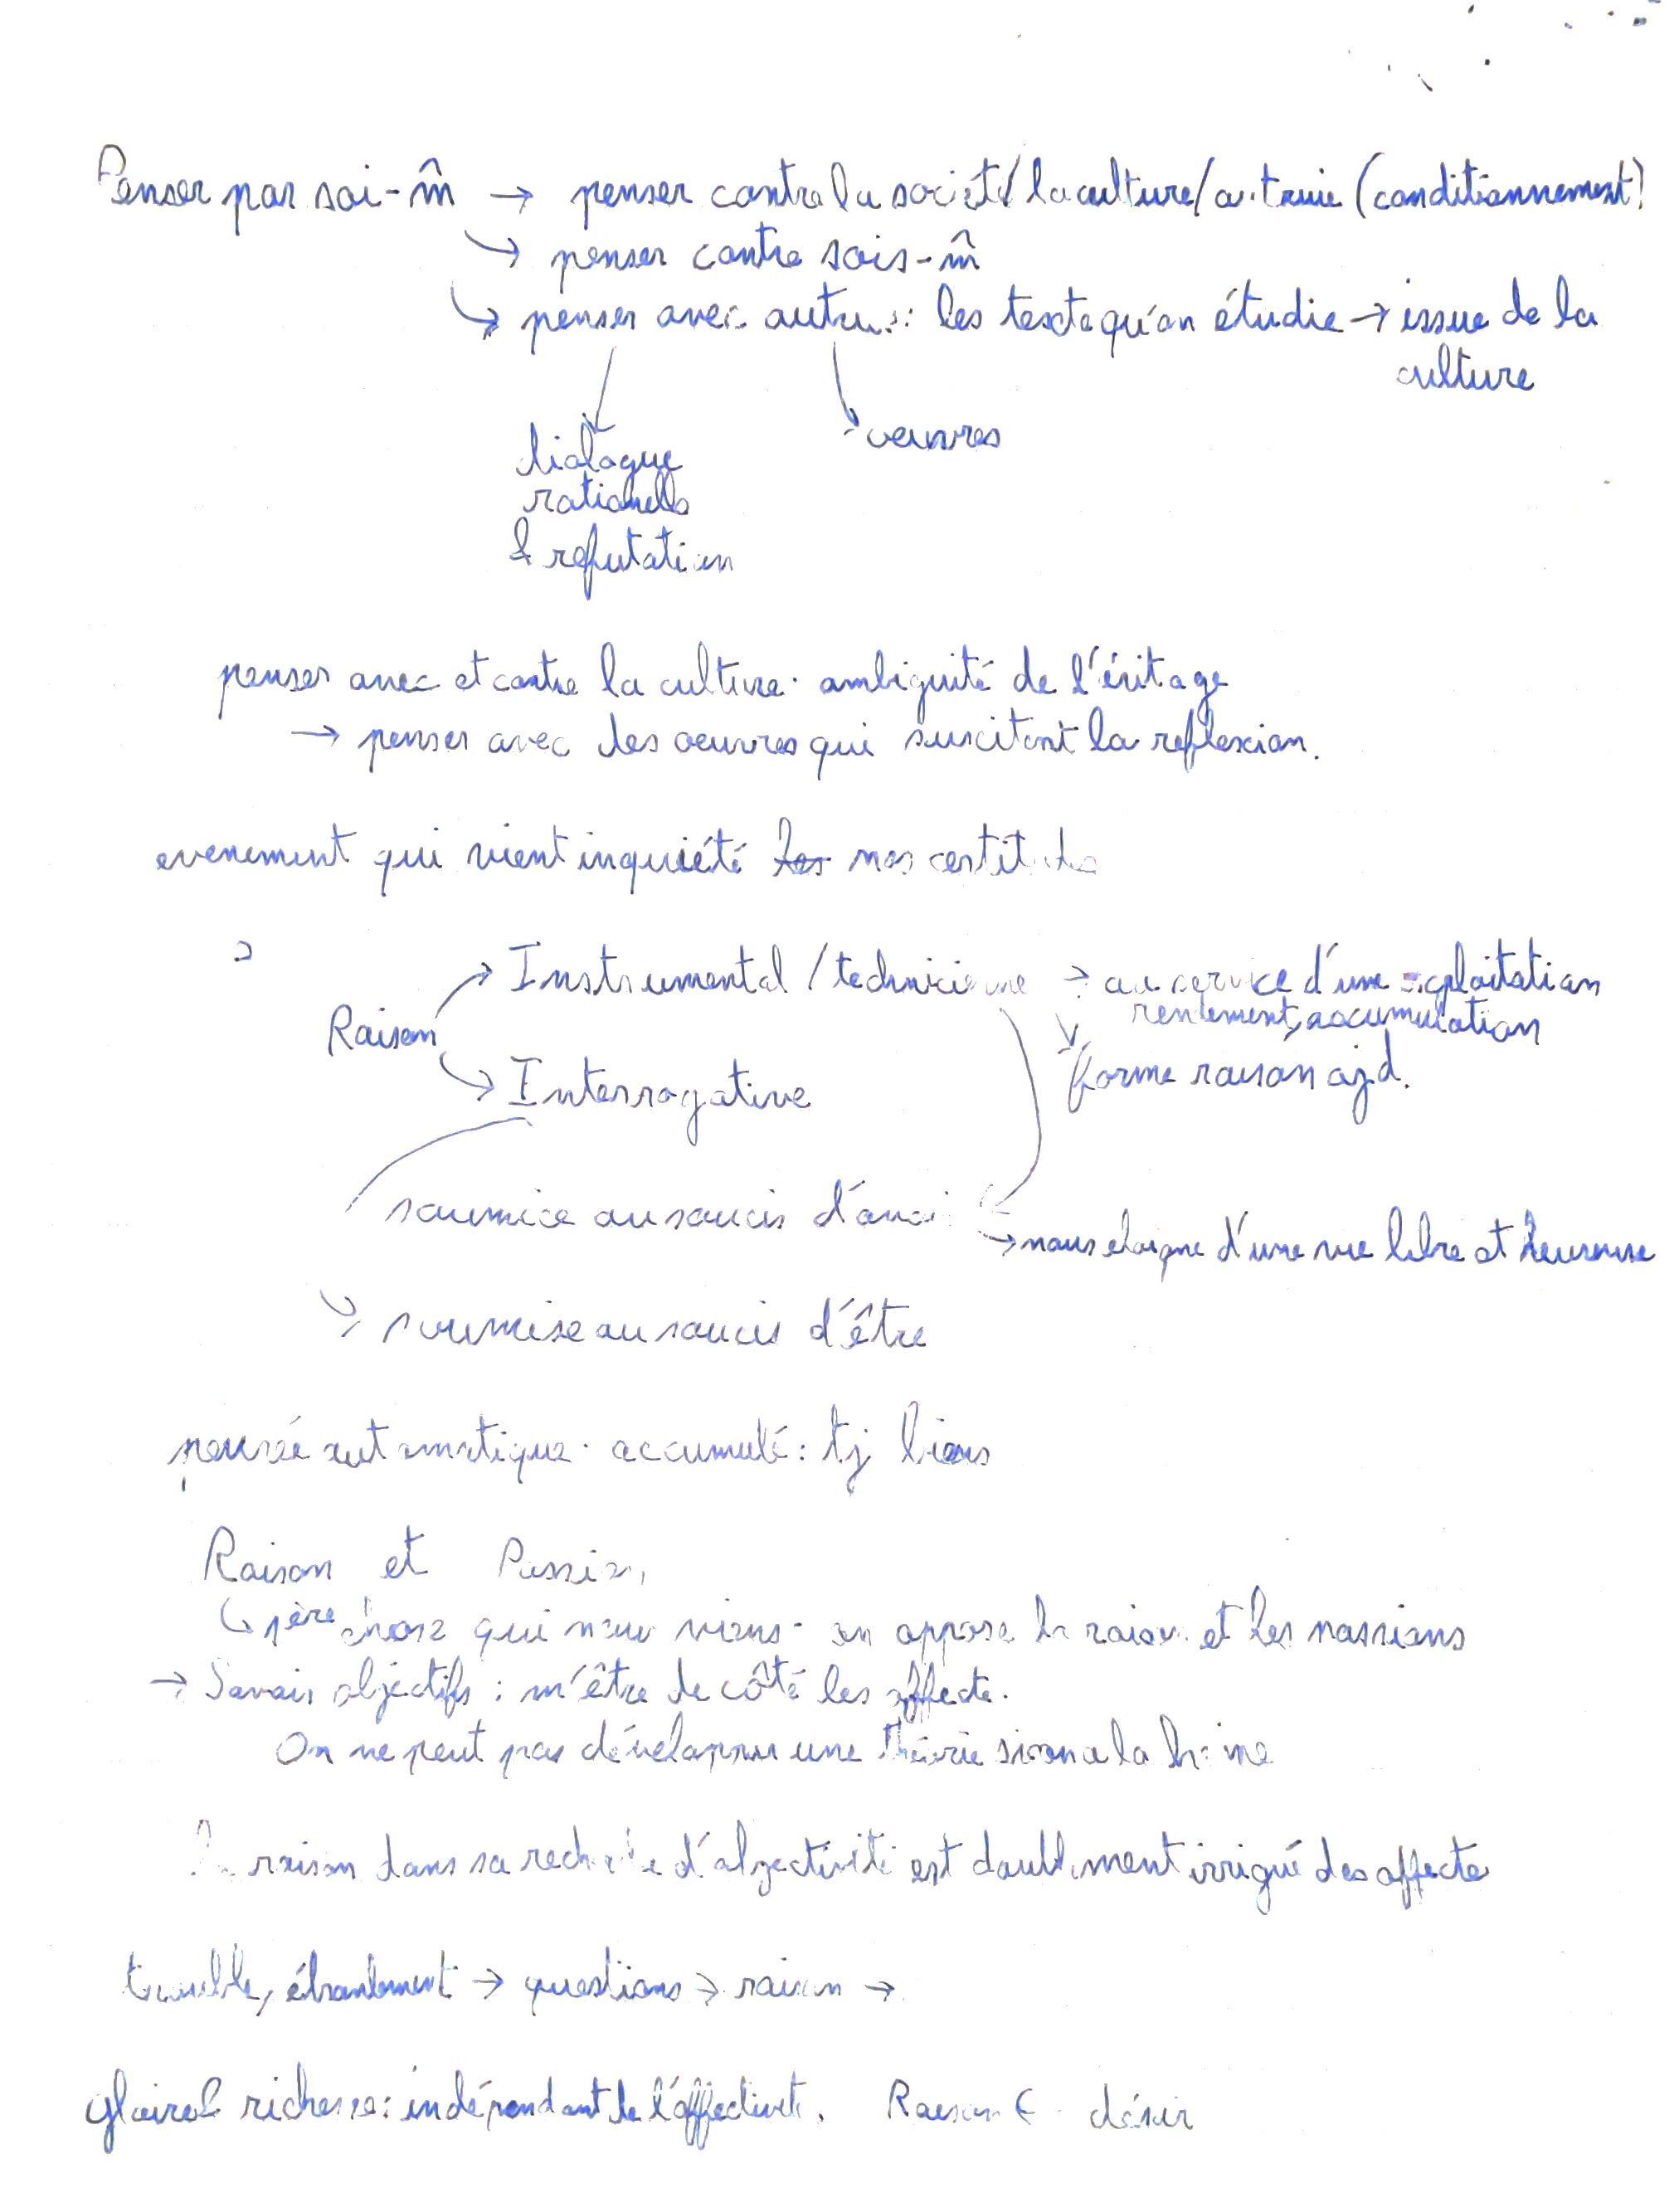 Penser par soi-m̂ → penser contre la société/la culture/autruie (conditionnement)
↳ penser contre sois-m̂
↳ penser avec autrui : les texte qu'on étudie → issue de la
culture
dialogue
rationelle
& refutation
oeuvres
penser avec et contre la culture. ambiguité de l'éritage
→ penser avec des oeuvres qui suscitent la reflexion.
evenement qui vient inquiété nos certitude
Raison
→ Instrumental / technicienne → au service d'une exploitation
rendement, accumulation
forme raison ajd.
→ Interrogative
soumice au soucis d'avoir
→ nous eloigne d'une vie libre et heureuse
soumise au soucis d'être
pensée automatique. accumulé : tj biens
Raison et Passion
↳ 1ère chose qui nous viens. on oppose la raison et les passions
→ Savoir objectifs : m'être de côté les affecte.
On ne peut pas développer une théorie si on a la haine
La raison dans sa recherche d'objectivité est doublement irrigué des affecte
trouble, ébranlement → questions → raison →
gloire & richesse : indépendant de l'affectivité. Raison € désir